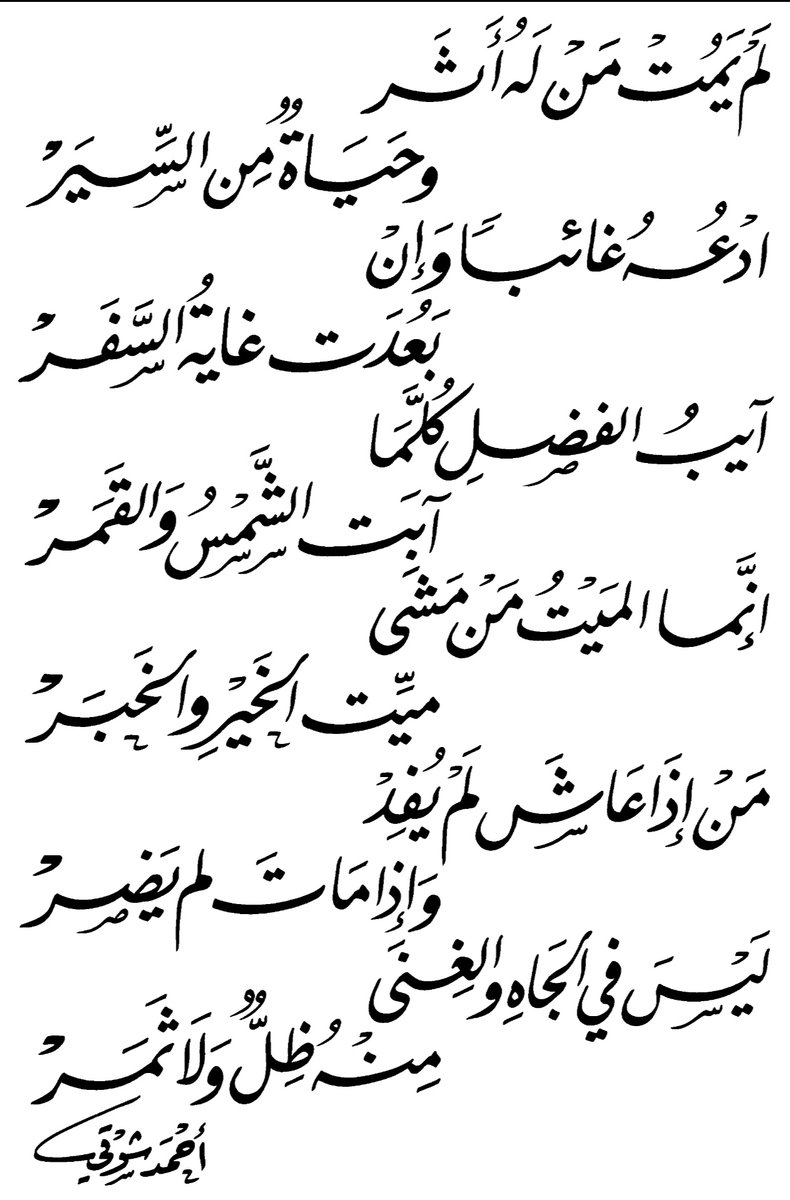 لَمْ يَمُتْ مَنْ لَهُ أَثَر
وحَيَاةٌ مِن السِّيَرْ
ادْعُهُ غائباً وَإِنْ
بَعُدَت غايةُ السَّفَرْ
آيبُ الفضلِ كُلَّمَا
آبَت الشَّمْسُ وَالقَمَرْ
إنَّما الميْتُ مَنْ مَشَى
ميِّت الخَيْرِ والخَبَرْ
مَنْ إِذَا عَاشَ لَمْ يُفِدْ
وَإِذا مَاتَ لم يَضِرْ
لَيْسَ في الجَاهِ والغِنَى
مِنْهُ ظِلٌّ وَلَا ثَمَرْ
أحْمَد شوْقي